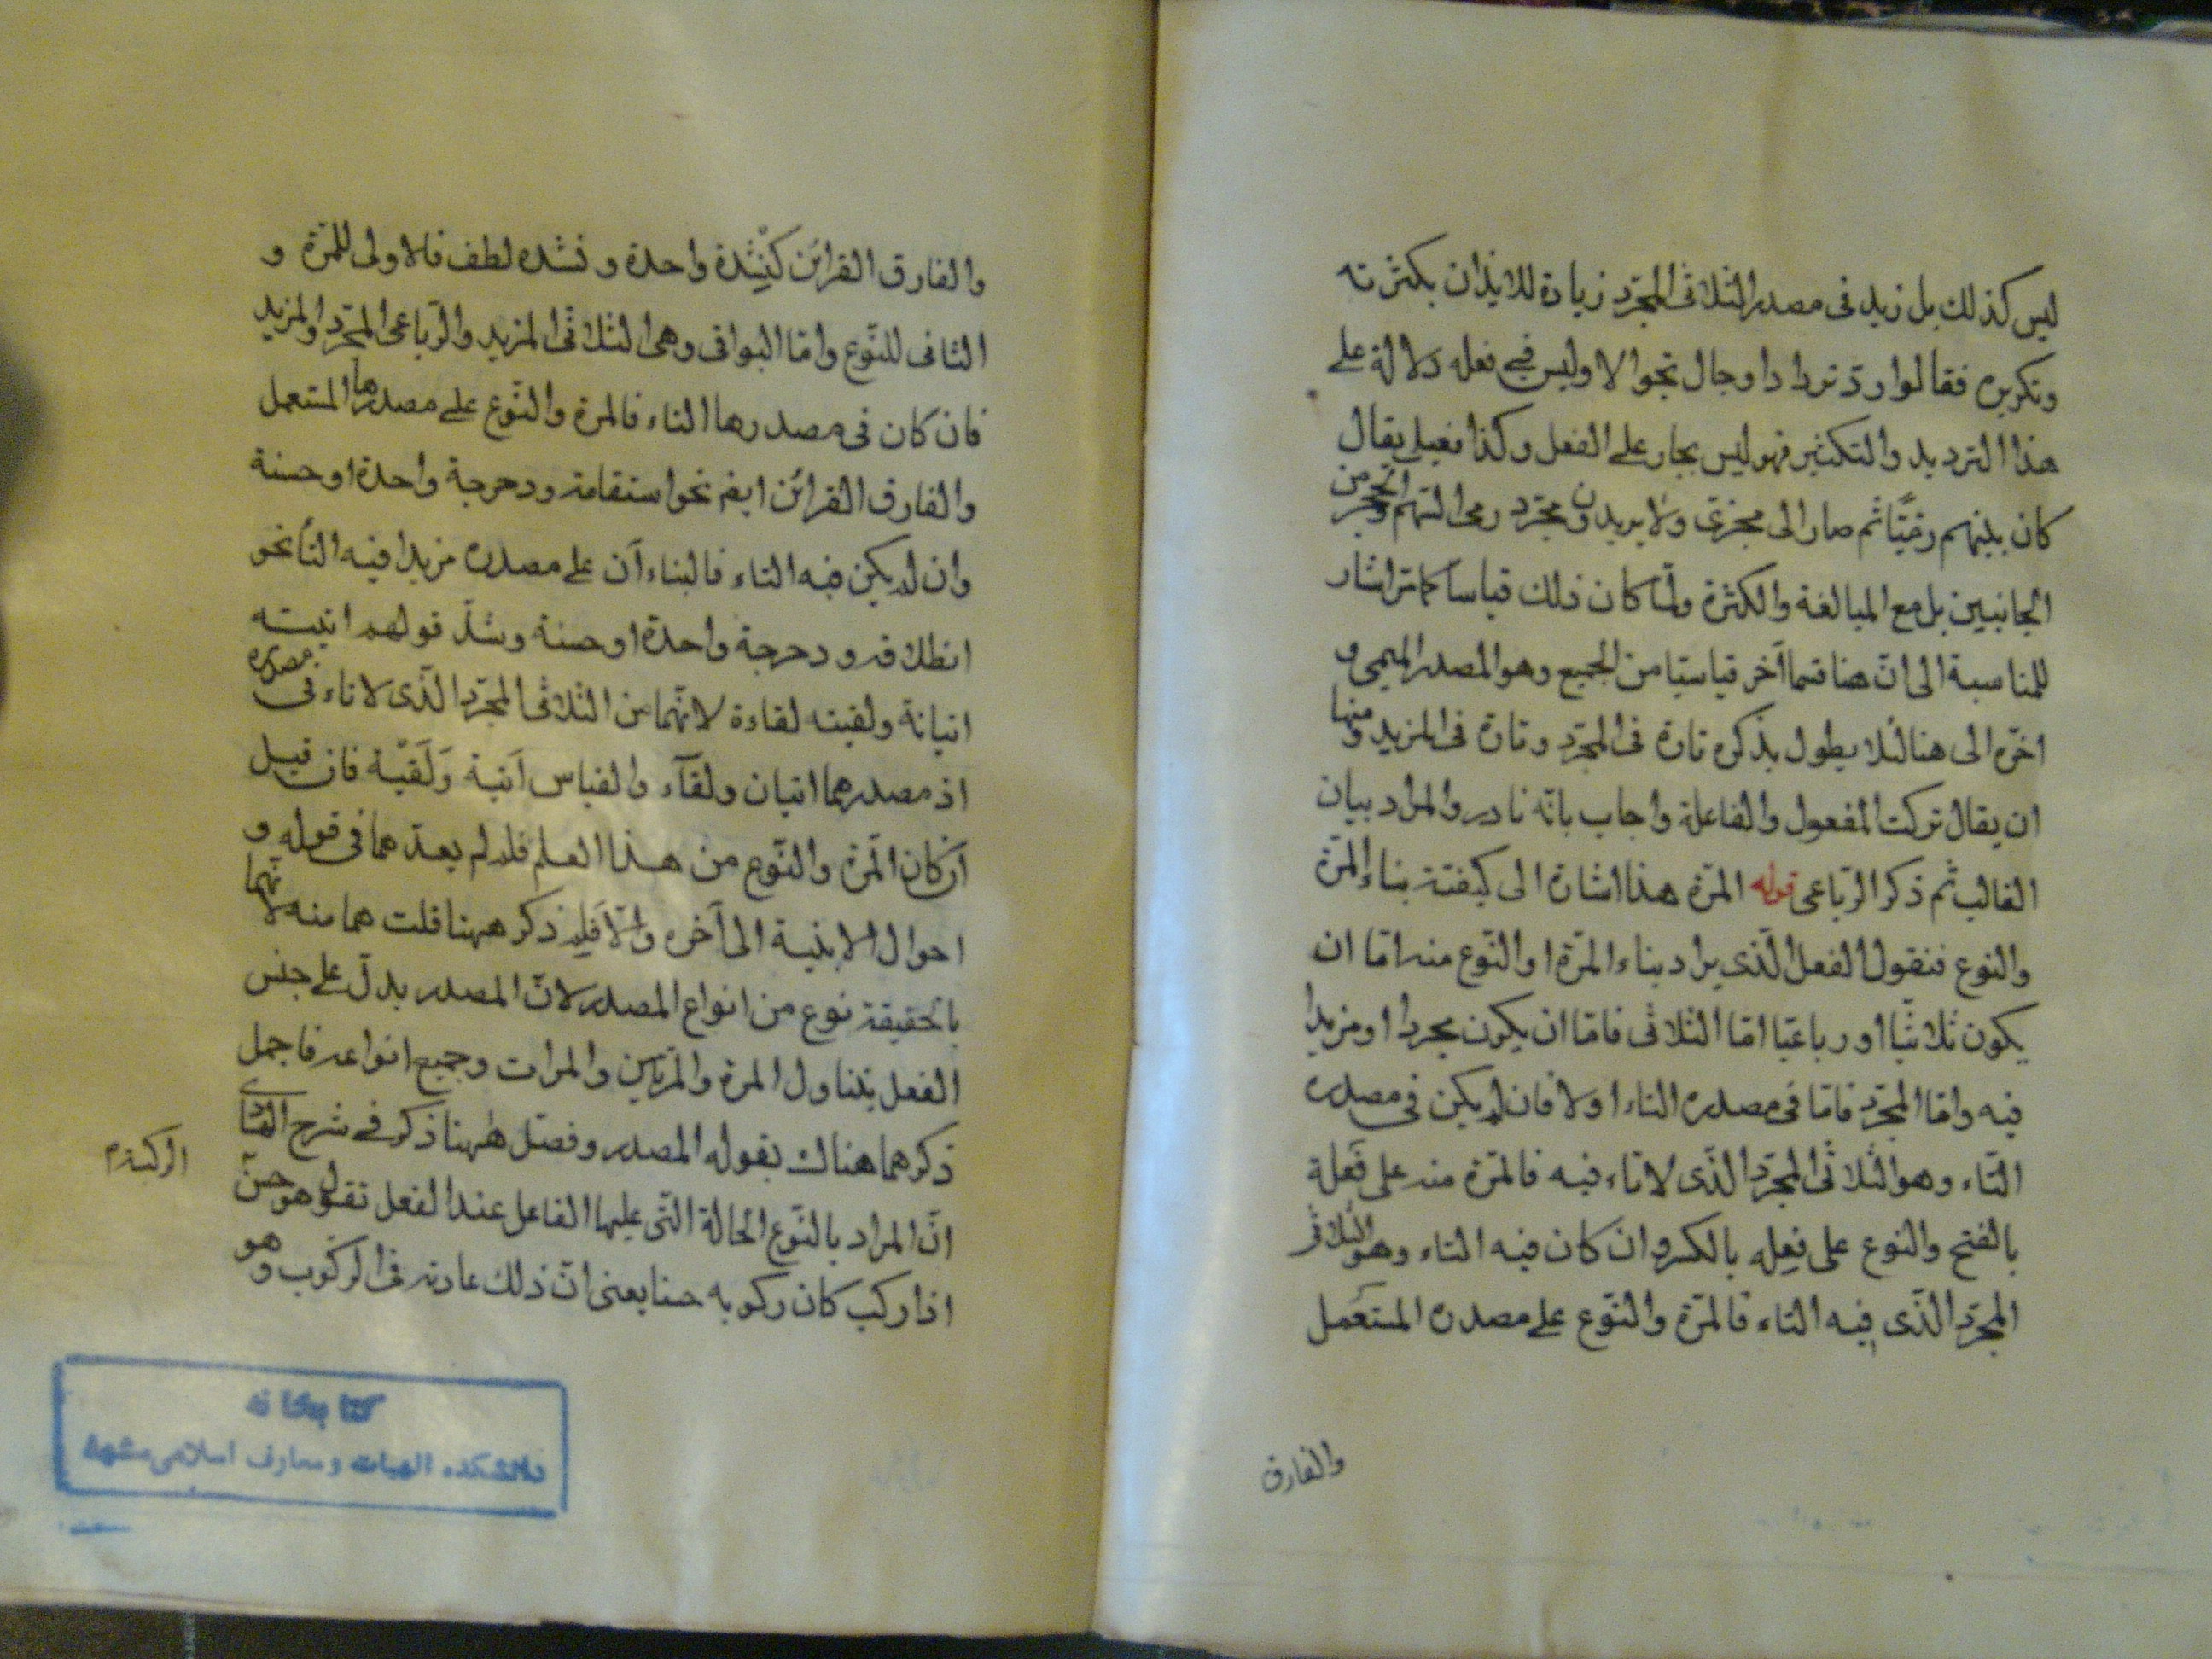 ليس كذلك بل زيد فى مصدر الثلاثى المجرّد زيادة للايذان بكثرته
وتكريره فقالوا ردّ تردادا وجال تجوالا وليس فى فعله دلالة على
هذا الترديد والتكثير فهو ليس بجار على الفعل وكذا فعيلى يقال
كان بينهم رمّيّا ثم صار الى حجزى ولا يريدون مجرّد رمى السهم والحجز من
الجانبين بل مع المبالغة والكثرة ولمّا كان ذلك قياسا كما مرّ اشار
للمناسبة الى انّ هنا قسما آخر قياسيّا من الجميع وهو المصدر الميمى و
اخّره الى هنا لئلا يطول بذكره تارة فى المجرّد وتارة فى المزيد ومنها
ان يقال تركت المفعول والفاعلة واجاب بانّه نادر والمراد بيان
الغالب ثم ذكر الرّباعى قوله المرّة هذا اشارة الى كيفيّة بناء المرّة
والنوع فنقول الفعل الّذى يراد بناء المرّة او النّوع منه امّا ان
يكون ثلاثيّا او رباعيّا امّا الثلاثى فامّا ان يكون مجردا او مزيدا
فيه وامّا المجرّد فامّا فى مصدره التاء او لا فان لم يكن فى مصدره
التاء وهو الثلاثى المجرّد الذى لا تاء فيه فالمرّة منه على فَعلة
بالفتح والنوع على فِعله بالكسر وان كان فيه التاء وهو الثلاثى
المجرّد الذّى فيه التاء فالمرّة والنّوع على مصدره المستعمل
والفارق
والفارق القرائن كنِشْدة واحدة ونشده لطف فالاولى للمرّة و
الثانى للنّوع وامّا البواقى وهى الثلاثى المزيد والرّباعى المجرّد والمزيد
فان كان فى مصدرها التاء فالمرة والنّوع على مصدرها المستعمل
والفارق القرائن ايضم نحو استقامة ودحرجة واحدة او حسنة
وان لم يكن فيه التاء فالبناءآن على مصدره مزيدا فيه التأ نحو
انطلاقه ودحرجة واحدة او حسنة وشذّ قولهم اتيته
اتيانة ولقيته لقاءة لانّهما من الثلاثى المجرّد الذّى لا تاء فى مصدره
اذ مصدرهما اتيان ولقآء والقياس اَتية وَلَقْية فان قيل
ان كان المّرة والنّوع من هذا العلم فلم لم يعدّهما فى قوله و
احوال الابنية الى آخره والّا فلم ذكر ههنا قلت هما منه لانّهما
بالحقيقة نوع من انواع المصدر لانّ المصدر يدلّ على جنس
الفعل يتناول المرة والمرّتين والمرات وجميع انواعه فاجمل
ذكرهما هناك بقوله المصدر وفصّل ههنا ذكر فى شرح الهادى
انّ المراد بالنّوع الحالة التّى عليها الفاعل عند الفعل تقول هو حسن
الركبة م
اذا ركب كان ركوبه حسنا يعنى انّ ذلك عادته فى الركوب وهو
كتابخانه
دانشكده الهيات و معارف اسلامى مشهد